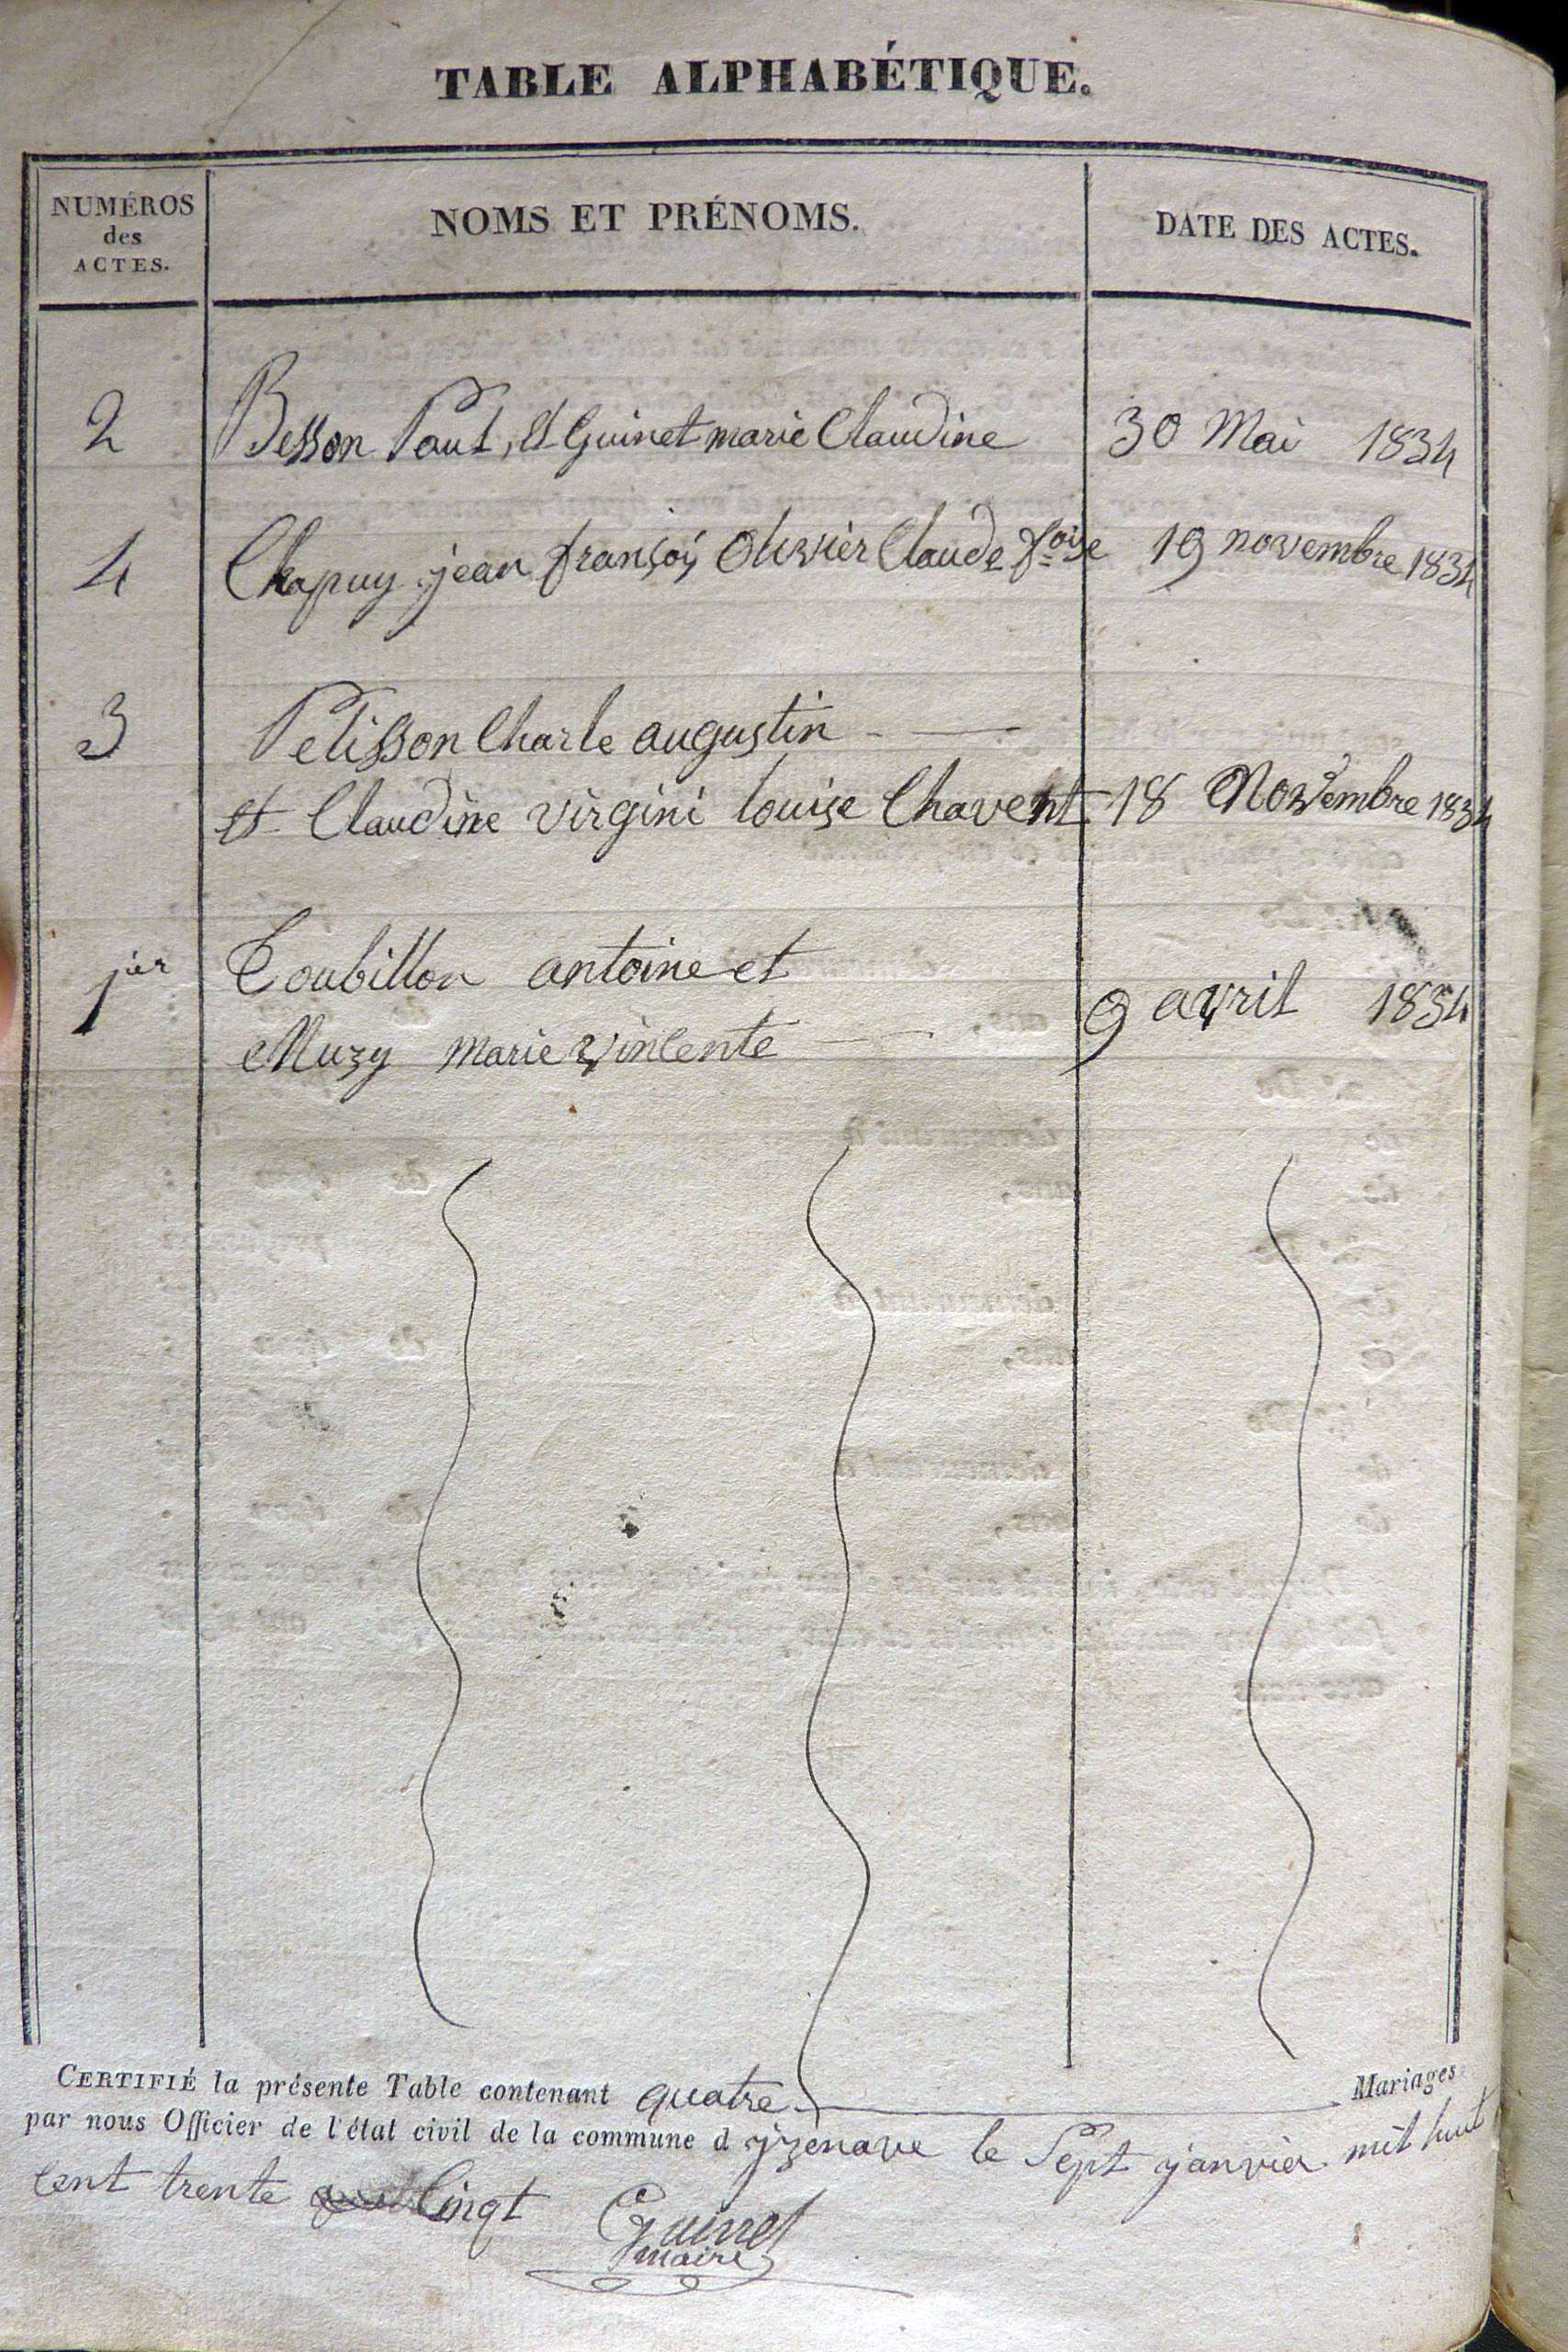 TABLE ALPHABÉTIQUE.
NUMÉROS
des
ACTES.
NOMS ET PRÉNOMS.
DATE DES ACTES.
2 Besson Paul, Et Guinet marie Claudine 30 Mai 1834
4 Chapuy jean françois Olivier Claude foise 19 novembre 1834
3 Pelisson Charle augustin
et Claudine virgini louise Chavent 18 Novembre 1834
1ier Toubillon antoine et
Muzy marie vincente 9 avril 1834
CERTIFIÉ la présente Table contenant quatre Mariages
par nous Officier de l'état civil de la commune d yzenave le Sept janvier mil huit
Cent trente Cinqt
Guinet
maire